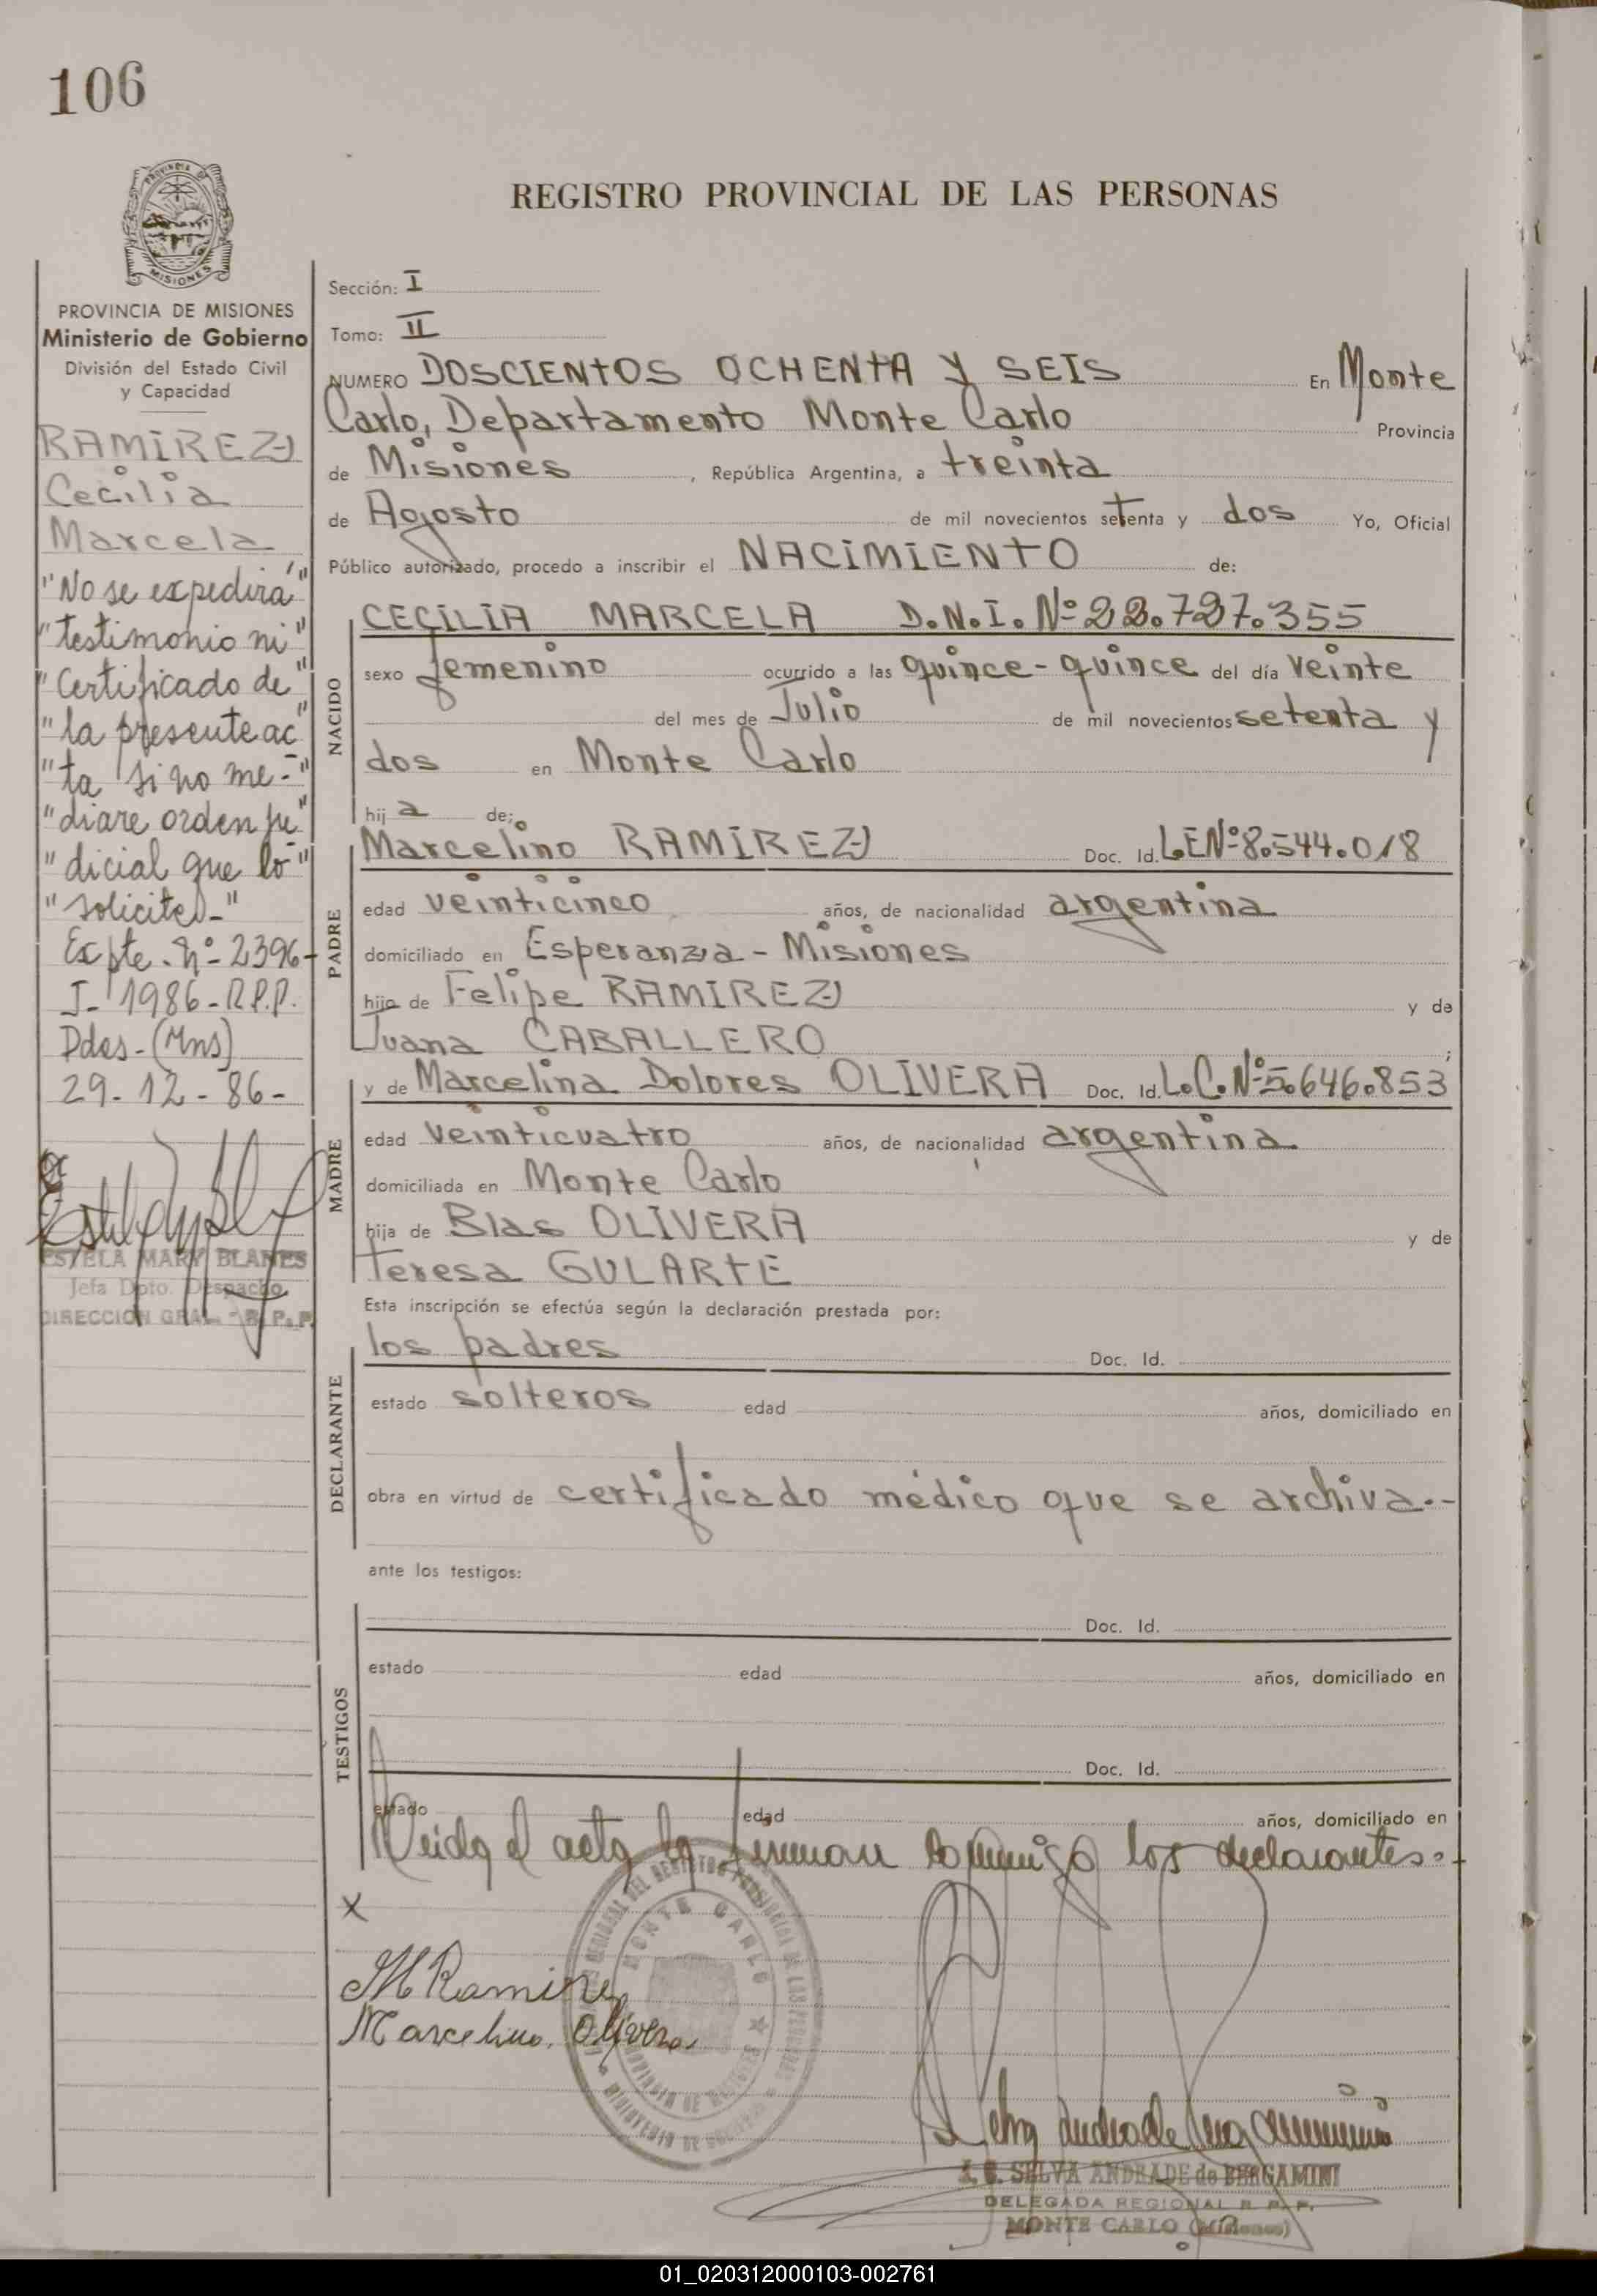 106
PROVINCIA DE MISIONES
Ministerio de Gobierno
División del Estado Civil
y Capacidad
RAMIREZ
Cecilia
Marcela
"No se expedirá"
"testimonio ni"
"Certificado de"
"la presente ac"
"ta si no me-"
"diare orden ju"
"dicial que lo"
"solicite.-"
Expte. Nº 2396-
J- 1986-R.P.P.
Pdas-(Mns)
29-12-86-
ESTELA MARY BLANES
Jefa Dpto. Despacho
DIRECCION GRAL. - R. P. P.
REGISTRO PROVINCIAL DE LAS PERSONAS
Sección: I
Tomo: II
NUMERO DOSCIENTOS OCHENTA Y SEIS En Monte
Carlo, Departamento Monte Carlo Provincia
de Misiones, República Argentina, a treinta
de Agosto de mil novecientos setenta y dos Yo, Oficial
Público autorizado, procedo a inscribir el NACIMIENTO de:
NACIDO
CECILIA MARCELA D.N.I. Nº 22.727.355
sexo femenino ocurrido a las quince-quince del día veinte
del mes de Julio de mil novecientos setenta y
dos en Monte Carlo
hija de:
PADRE
Marcelino RAMIREZ Doc. Id. L.E.Nº 8.544.018
edad veinticinco años, de nacionalidad argentina
domiciliado en Esperanza - Misiones
hijo de Felipe RAMIREZ y de
Juana CABALLERO ;
MADRE
y de Marcelina Dolores OLIVERA Doc. Id. L.C.Nº 5.646.853
edad veinticuatro años, de nacionalidad argentina
domiciliada en Monte Carlo
hija de Blas OLIVERA y de
Teresa GULARTE
Esta inscripción se efectúa según la declaración prestada por:
DECLARANTE
los padres Doc. Id.
estado solteros edad años, domiciliado en
obra en virtud de certificado médico que se archiva.-
ante los testigos:
TESTIGOS
Doc. Id.
estado edad años, domiciliado en
Doc. Id.
estado edad años, domiciliado en
Leida el acta la firman conmigo los declarantes.
X
M Ramirez
Marcelina Olivera
MONTE CARLO
PROVINCIA DE MISIONES
A. G. SELVA ANDRADE de BERGAMINI
DELEGADA REGIONAL R. P. P.
MONTE CARLO (Misiones)
01_020312000103-002761